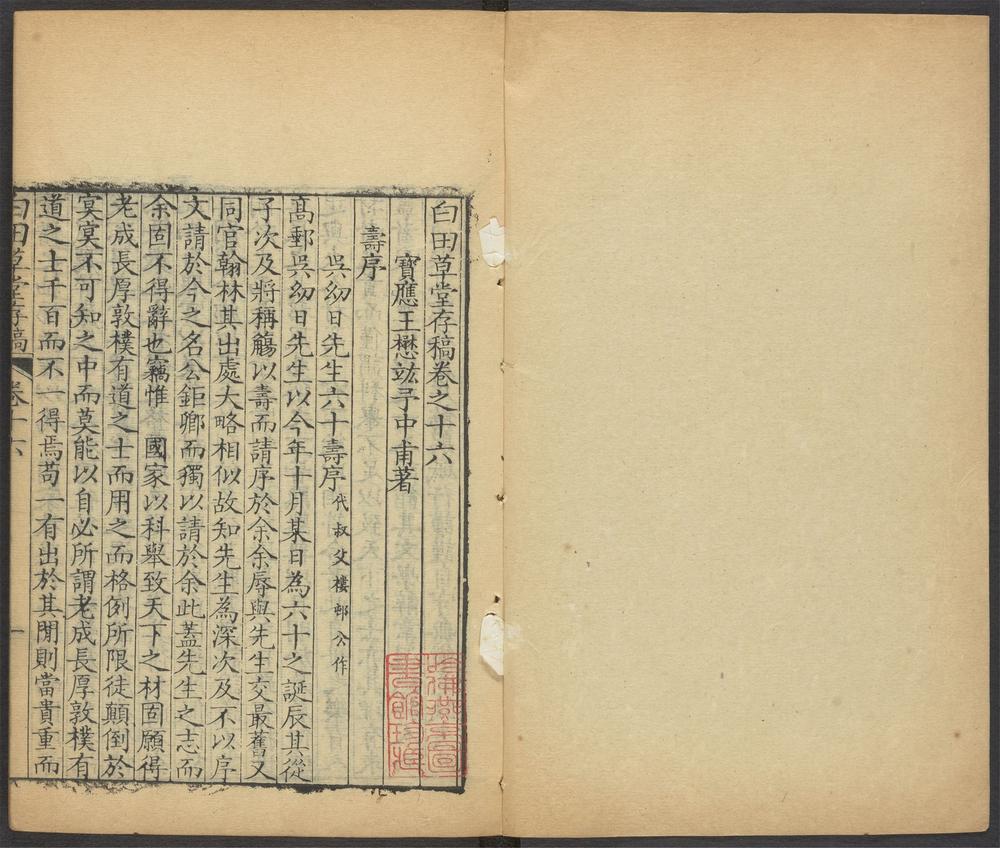 白田草堂存稿卷之十六
寶應王懋竑予中甫著
壽序
吳幼日先生六十壽序代叔父樓邨公作
高郵吳幼日先生以今年十月某日為六十之誕辰其從
子次及將稱觴以壽而請序於余余辱與先生交最舊又
同官翰林其出處大略相似故知先生為深次及不以序
文請於今之名公鉅卿而獨以請於余此蓋先生之志而
余固不得辭也竊惟 國家以科舉致天下之材固願得
老成長厚敦樸有道之士而用之而格例所限徒顛倒於
寞寞不可知之中而莫能以自必所謂老成長厚敦樸有
道之士千百而不一得焉苟一有出於其閒則當貴重而
白田草堂存稿 卷十六 一